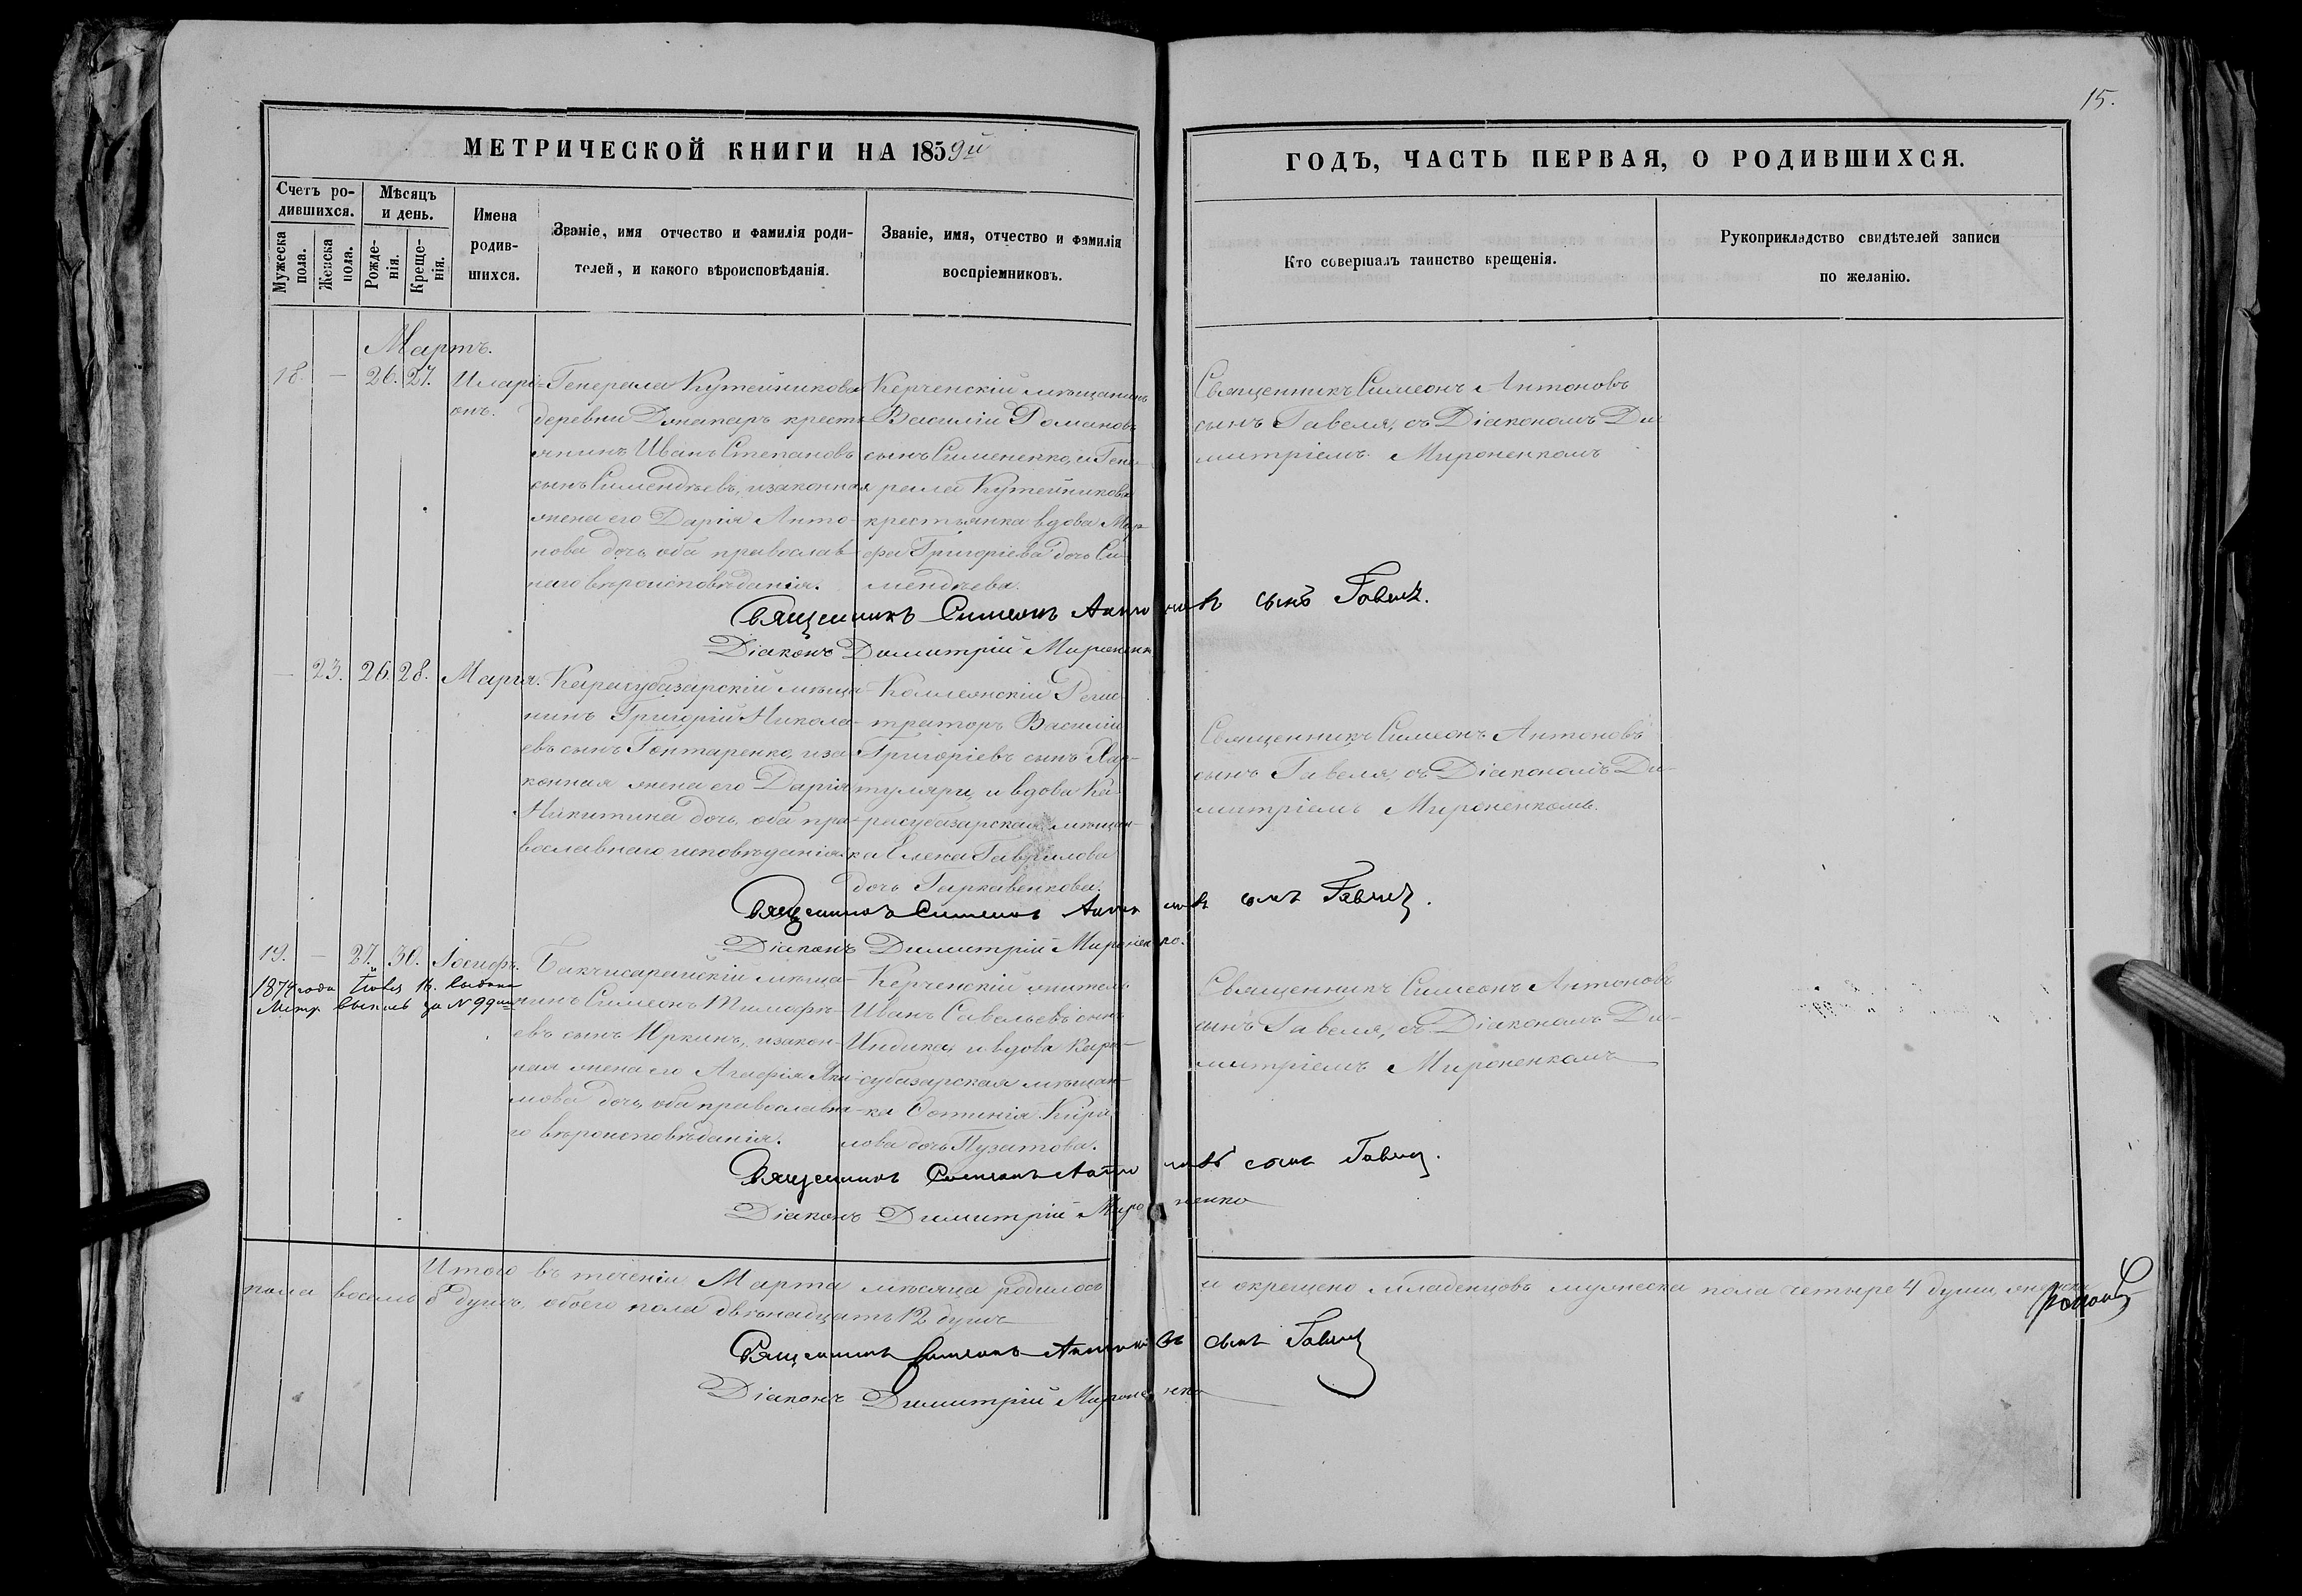 15.
МЕТРИЧЕСКОЙ КНИГИ НА 1859й
ГОДЪ, ЧАСТЬ ПЕРВАЯ, О РОДИВШИХСЯ.
Счетъ родившихся.
Мужеска пола.
Женска пола.
Мѣсяцъ и день.
Рожденія.
Крещенія.
Имена родившихся.
Званіе, имя отчество и фамилія родителей, и какого вѣроисповѣданія.
Званіе, имя, отчество и фамилія воспріемниковъ.
Кто совершалъ таинство крещенія.
Рукоприкладство свидѣтелей записи по желанію.
Мартъ.
18. — 26. 27. Иларі-
онъ.
Генерала Кутейникова
деревни крестъ-
янинъ Иванъ Степановъ
сынъ Симендѣевъ, и законная
жена его Дарія Анто-
нова дочь, оба православ-
наго вѣроисповѣданія.
Керченскій мѣщанинъ
Василій Романовъ
сынъ Симененко, и Гене-
рала Кутейникова
крестьянка вдова Мар-
фа Григоріева дочь Си-
мендѣева.
Священникъ Симеонъ Антоновъ
сынъ Гавеля, съ Діакономъ Ди-
митріемъ Мироненкомъ
Священникъ Симеонъ Антоновъ сынъ Гавеля.
Діаконъ Димитрій Мироненко
— 23. 26. 28. Марія.
Карасубазарскій мѣща-
нинъ Григорій Никола-
евъ сынъ Гонтаренко, и за-
конная жена его Дарія
Никитина дочь, оба пра-
вославнаго исповѣданія.
Коллежскій Регис-
траторъ Василій
Григоріевъ сынъ Хар-
туляри, и вдова Ка-
расубазарская мѣщан-
ка Елена Гаврилова
дочь Гаркавенкова.
Священникъ Симеонъ Антоновъ
сынъ Гавеля, съ Діакономъ Ди-
митріемъ Мироненкомъ.
Священникъ Симеонъ Антоновъ сынъ Гавеля.
Діаконъ Димитрій Мироненко.
19. — 27. 30. Іосифъ.
1874 года Іюля 16. выдана
Метр. выпись за № 99
Бакчисарайскій мѣща-
нинъ Симеонъ Тимофѣ-
евъ сынъ Юркинъ, и закон-
ная жена его Агафія Яки-
мова дочь, оба православна-
го вѣроисповѣданія.
Керченскій житель
Иванъ Савельевъ сынъ
Индика, и вдова Кара-
субазарская мѣщан-
ка Устинія Кири-
лова дочь Пузатова.
Священникъ Симеонъ Антоновъ
сынъ Гавеля, съ Діакономъ Ди-
митріемъ Мироненкомъ
Священникъ Симеонъ Антоновъ сынъ Гавеля.
Діаконъ Димитрій Мироненко
Итого въ теченіи Марта мѣсяца родилось и окрещено младенцовъ мужеска пола четыре 4 души, женска
пола восемь 8 душъ, обоего пола двѣнадцать 12 душъ
Священникъ Симеонъ Антоновъ сынъ Гавеля
Діаконъ Димитрій Мироненко